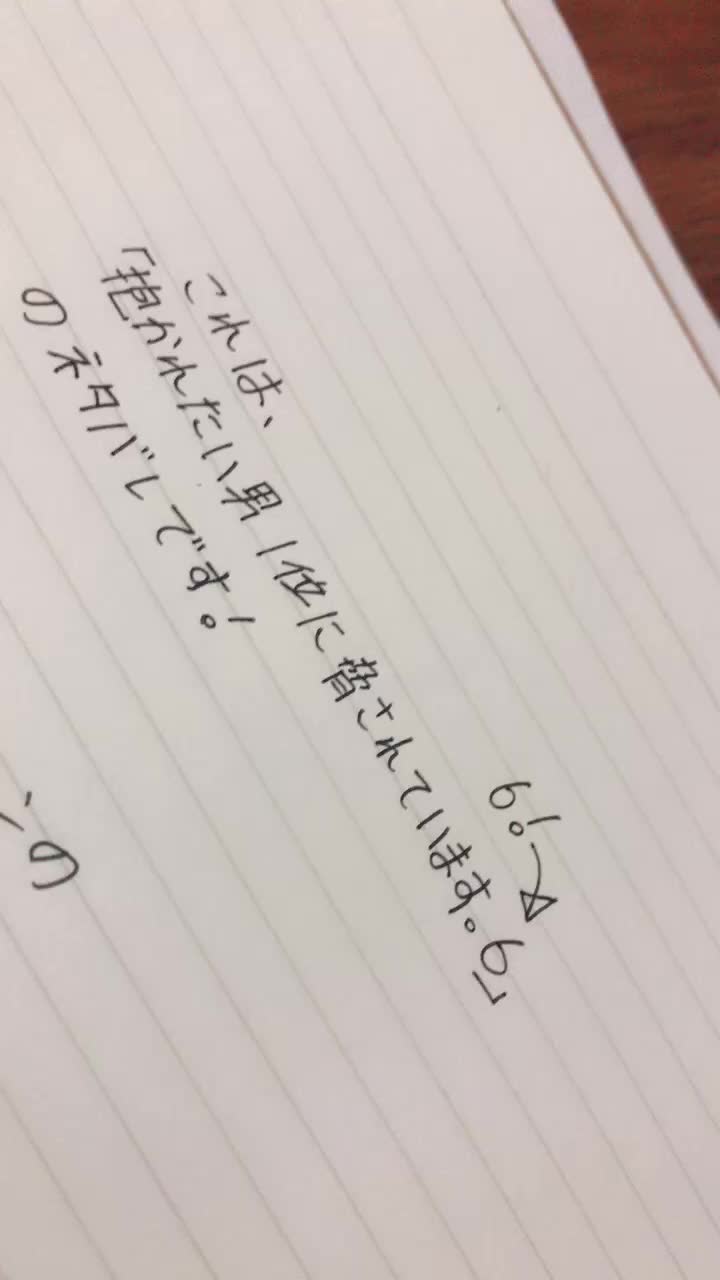 これは、
「抱かれたい男1位に脅されています。9」
9!
のネタバレです!
の